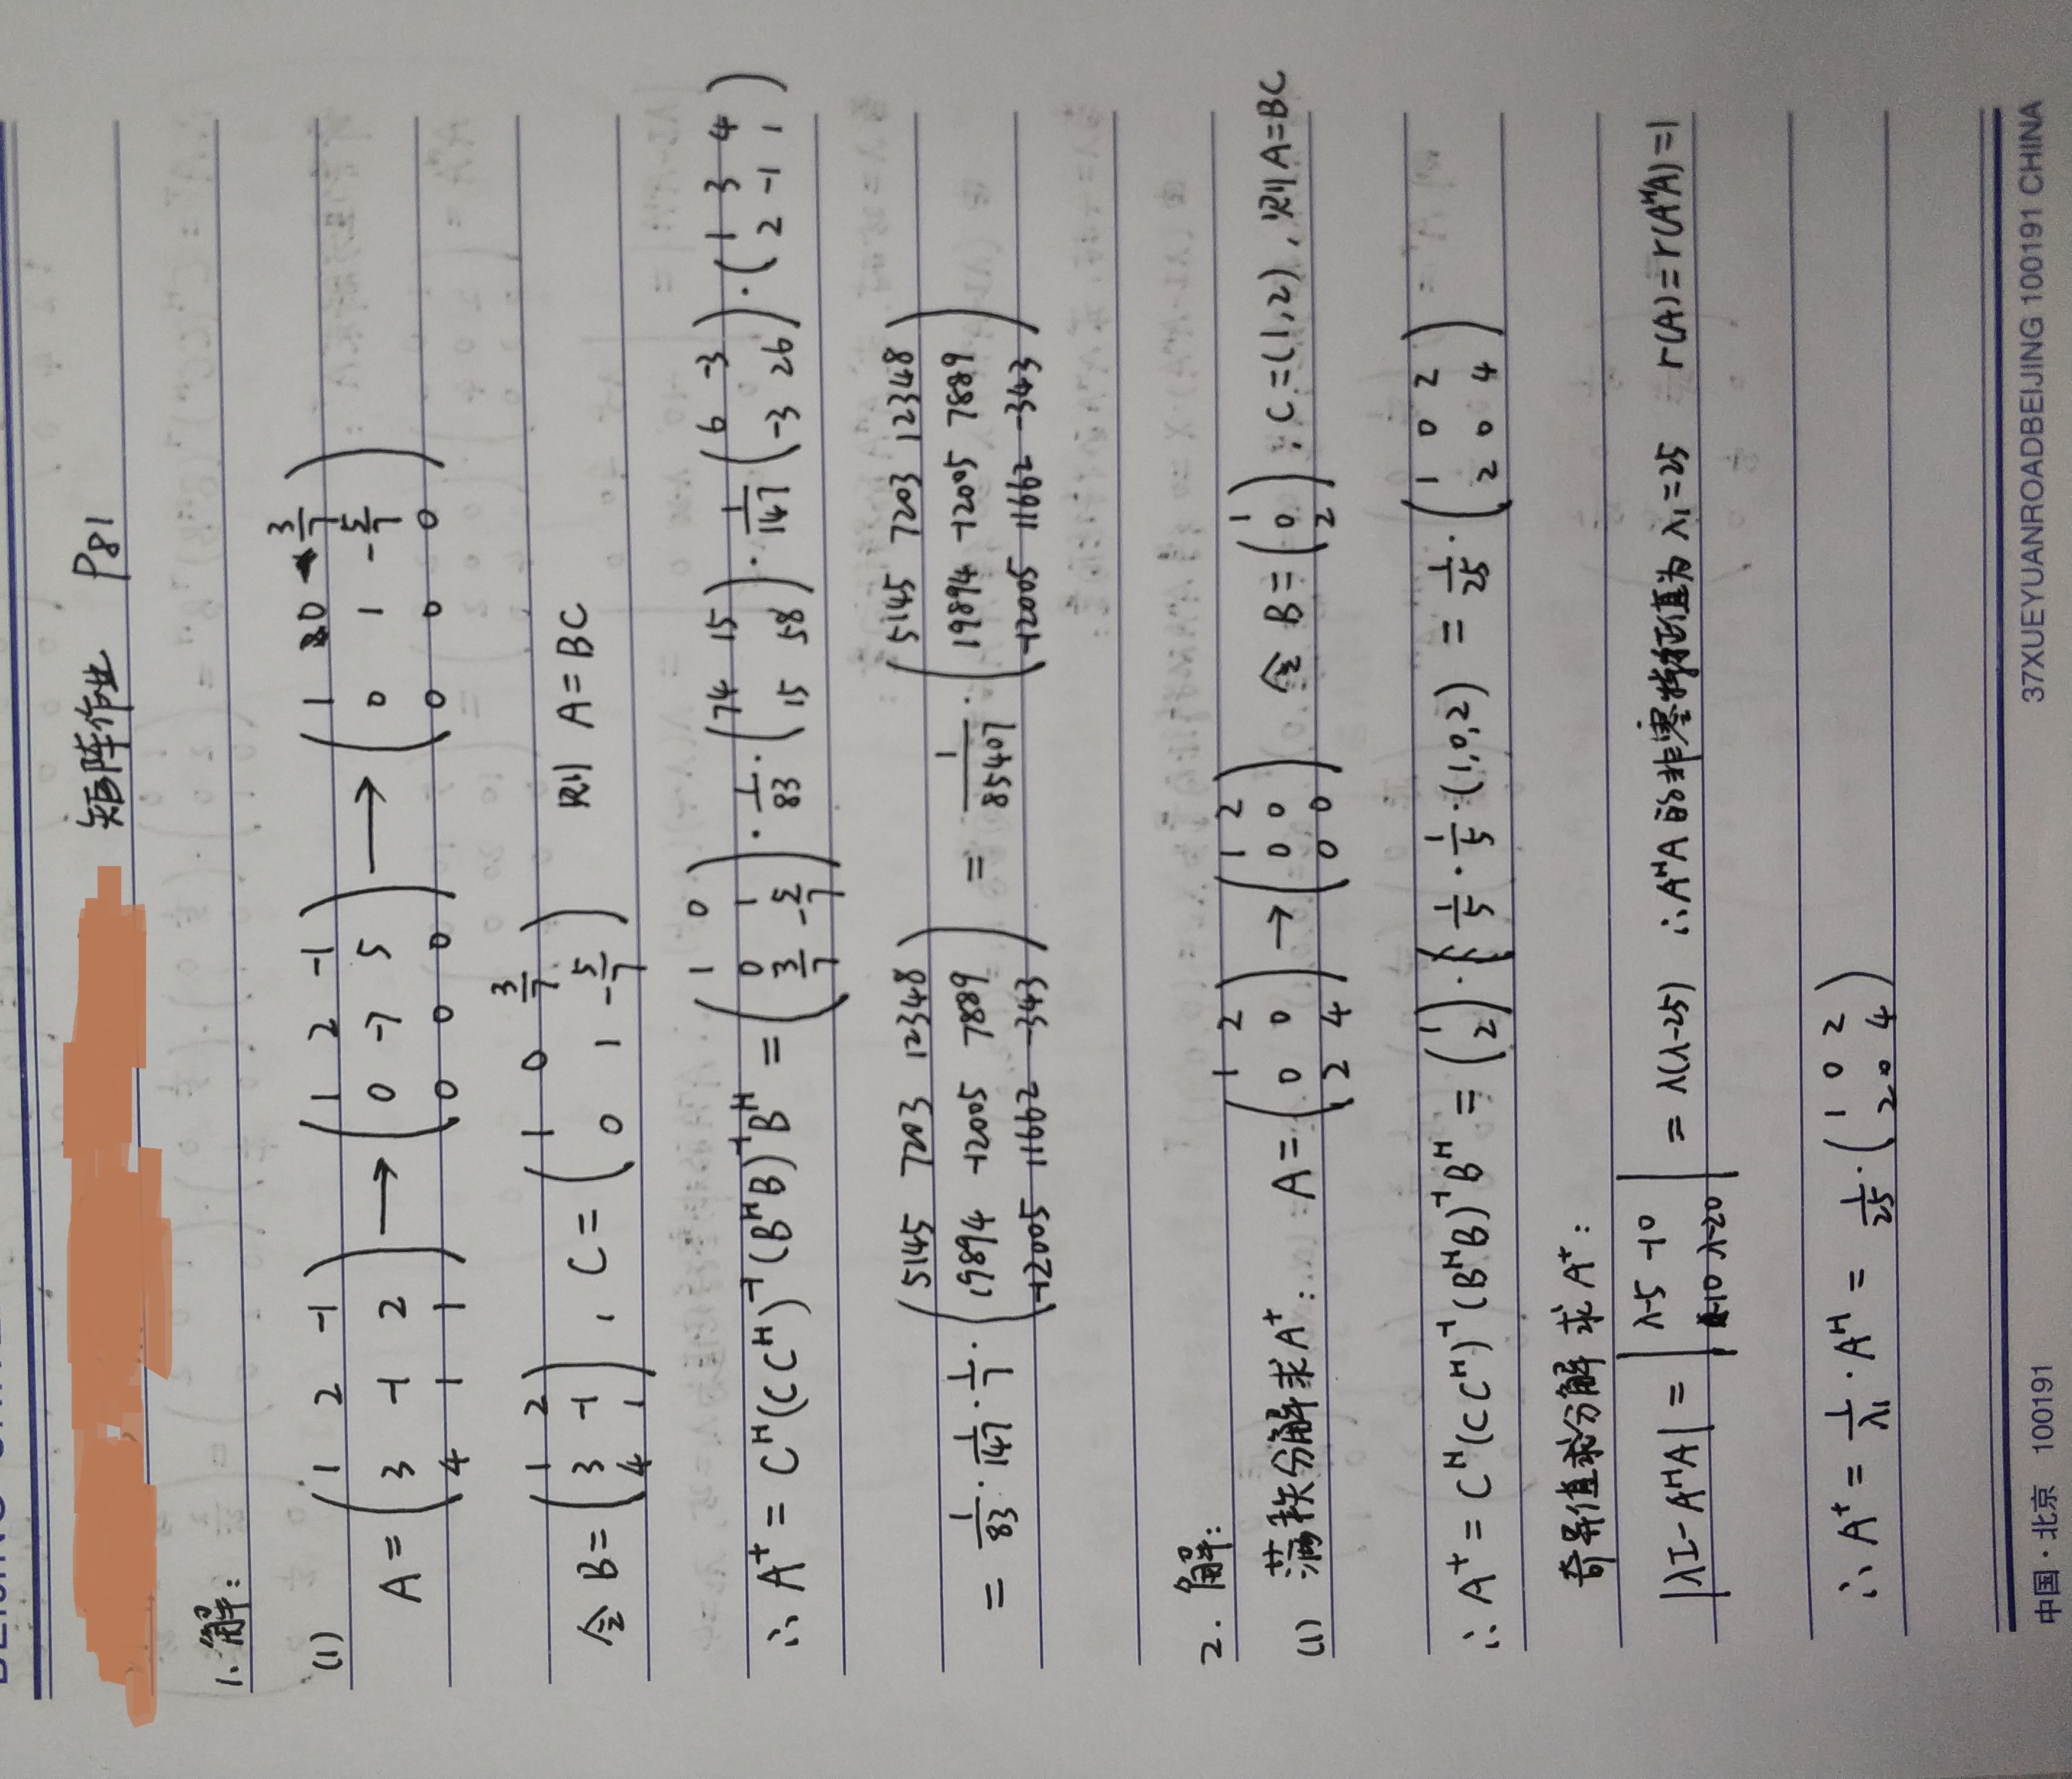 矩阵作业 P81
1. 解:
(1)
A = (1 2 -1; 3 -1 2; 4 1 1) → (1 2 -1; 0 -7 5; 0 0 0) → (1 0 3/7; 0 1 -5/7; 0 0 0)
令 B = (1 2; 3 -1; 4 1), C = (1 0 3/7; 0 1 -5/7) 则 A = BC
∴ A⁺ = Cᴴ(CCᴴ)⁻¹(BᴴB)⁻¹Bᴴ = (1 0; 0 1; 3/7 -5/7) · 1/83 · (74 15; 15 58) · 1/147 (6 -3; -3 26) · (1 3 4; 2 -1 1)
= 1/83 · 1/147 · 1/7 · (5145 7203 12348; 19894 -12005 7889; -12005 11662 -343) = 1/85407 · (5145 7203 12348; 19894 -12005 7889; -12005 11662 -343)
2. 解:
(1) 满秩分解求A⁺: A = (1 2; 0 0; 2 4) → (1 2; 0 0; 0 0) 令 B = (1; 0; 2); C = (1, 2), 则 A = BC
∴ A⁺ = Cᴴ(CCᴴ)⁻¹(BᴴB)⁻¹Bᴴ = (1; 2) · 1/5 · 1/5 · (1, 0, 2) = 1/25 · (1 0 2; 2 0 4)
奇异值求分解求A⁺:
|λI - AᴴA| = |λ-5 -10; -10 λ-20| = λ(λ-25) ∴ AᴴA的非零特征值为 λ₁=25 r(A)=r(AᴴA)=1
∴ A⁺ = 1/λ₁ · Aᴴ = 1/25 · (1 0 2; 2 0 4)
中国·北京 100191 37XUEYUANROADBEIJING 100191 CHINA